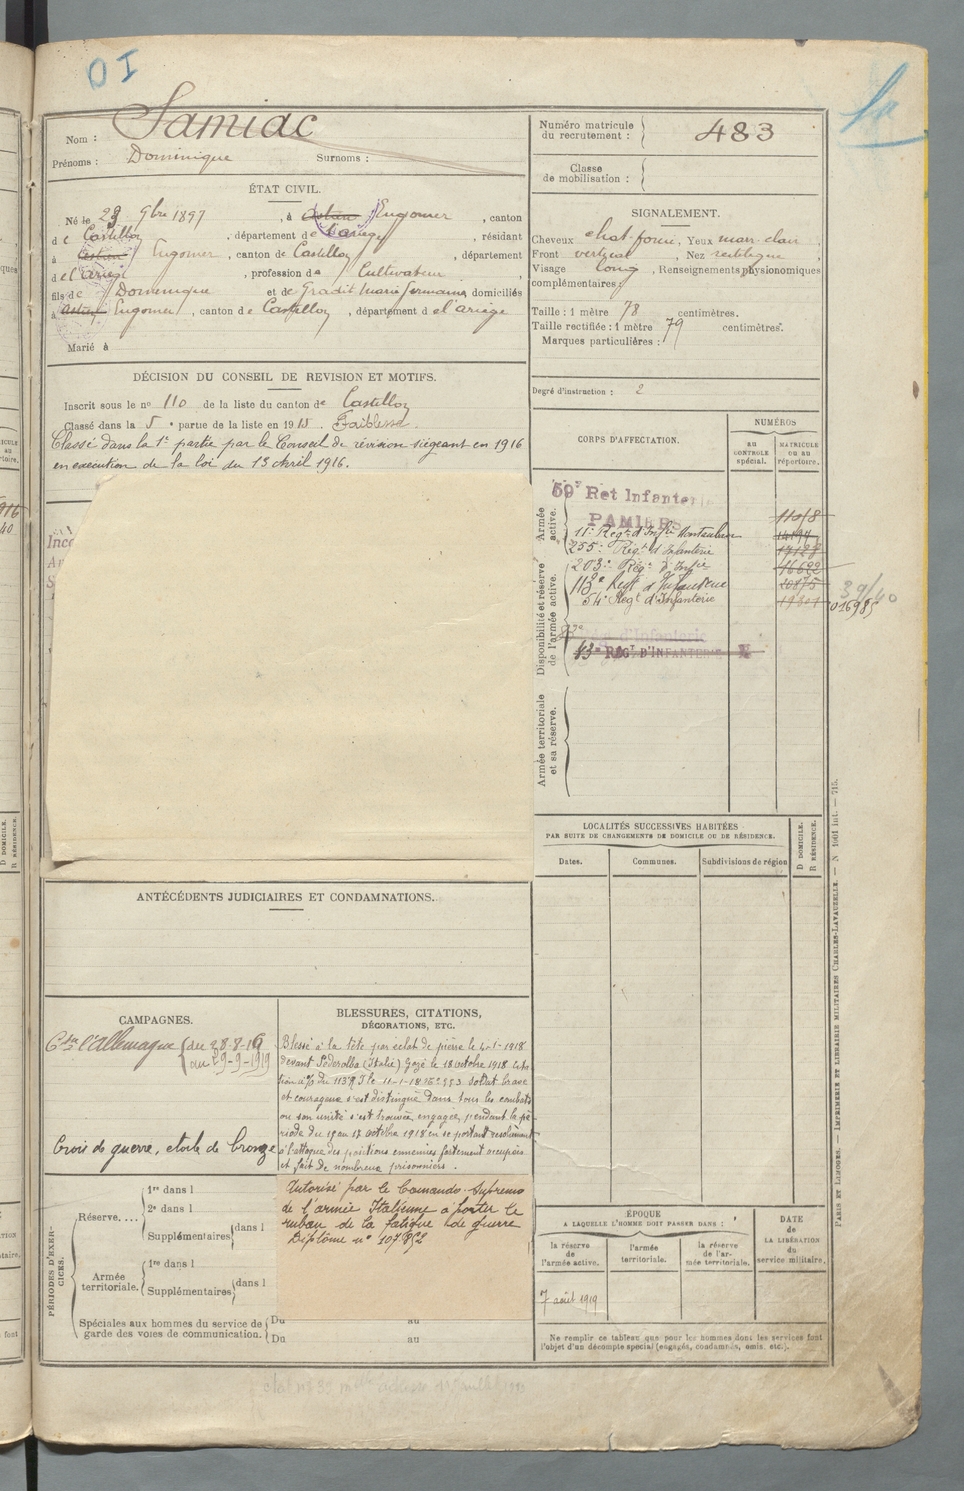 D I
Nom : Samiac
Prénoms : Dominique Surnoms :
ÉTAT CIVIL.
Né le 23 9bre 1897, à Engomer, canton
de Castillon, département de l'ariège, résidant
à Engomer, canton de Castillon, département
de l'ariège, profession de Cultivateur
fils de Dominique et de Gradit Marie Germaine domiciliés
à Engomer, canton de Castillon, département de l'ariège
Marié à
DÉCISION DU CONSEIL DE REVISION ET MOTIFS.
Inscrit sous le no 110 de la liste du canton de Castillon
Classé dans la 5e partie de la liste en 1915. Faiblesse.
Classé dans la 1e partie par le Conseil de révision siégeant en 1916
en exécution de la loi du 13 Avril 1916.
ANTÉCÉDENTS JUDICIAIRES ET CONDAMNATIONS.
CAMPAGNES.
Ctre l'Allemagne du 28-8-16
au 29-9-1919
Croix de guerre, etoile de bronze
BLESSURES, CITATIONS,
DÉCORATIONS, ETC.
Blessé à la tête par éclat de pierre le 4-1-1918
devant Poderolba (Italie) Gazé le 18 octobre 1918
soldat brave
et courageux s'est distingué dans tous les combats
ou son unité s'est trouvée engagée pendant la pé-
riode du 19 au 17 octobre 1918 en se portant résolument
à l'attaque des positions ennemies fortement occupées
et fait de nombreux prisonniers.
Autorisé par le Comando Supremo
de l'armée Italienne à porter le
ruban de la fatigue de guerre
Diplôme n° 107852
PÉRIODES D'EXER-
CICES.
Réserve....
1re dans l
2e dans l
Supplémentaires dans l
Armée
territoriale.
1re dans l
Supplémentaires dans l
Spéciales aux hommes du service de
garde des voies de communication.
Du au
Du au
Numéro matricule
du recrutement : 483
Classe
de mobilisation :
SIGNALEMENT.
Cheveux chat. foncé, Yeux marr. clair,
Front vertical, Nez rectiligne,
Visage long, Renseignements physionomiques
complémentaires :
Taille : 1 mètre 78 centimètres.
Taille rectifiée : 1 mètre 79 centimètres.
Marques particulières :
Degré d'instruction : 2
CORPS D'AFFECTATION.
NUMÉROS
AU
CONTROLE
spécial.
MATRICULE
ou au
répertoire.
Armée
active.
59e Rgt Infanterie
PAMIERS
11e Regt d'Infie Montauban
255e Régt d'Infanterie
Disponibilité et réserve
de l'armée active.
203e Rég. d'Infie
113e Regt d'Infanterie
54e Regt d'Infanterie
d'Infanterie
REGT D'INFANTERIE
11018
16622
20875
016985
39/40
Armée territoriale
et sa réserve.
LOCALITÉS SUCCESSIVES HABITÉES
PAR SUITE DE CHANGEMENTS DE DOMICILE OU DE RÉSIDENCE.
Dates. Communes. Subdivisions de région
D DOMICILE.
R RÉSIDENCE.
ÉPOQUE
A LAQUELLE L'HOMME DOIT PASSER DANS :
la réserve
de
l'armée active.
l'armée
territoriale.
la réserve
de l'ar-
mée territoriale.
DATE
de
LA LIBÉRATION
du
service militaire.
7 août 1919
Ne remplir ce tableau que pour les hommes dont les services font
l'objet d'un décompte spécial (engagés, condamnés, omis, etc.).
PARIS ET LIMOGES. — IMPRIMERIE ET LIBRAIRIE MILITAIRES CHARLES-LAVAUZELLE. — N° 1001 int. — 715.